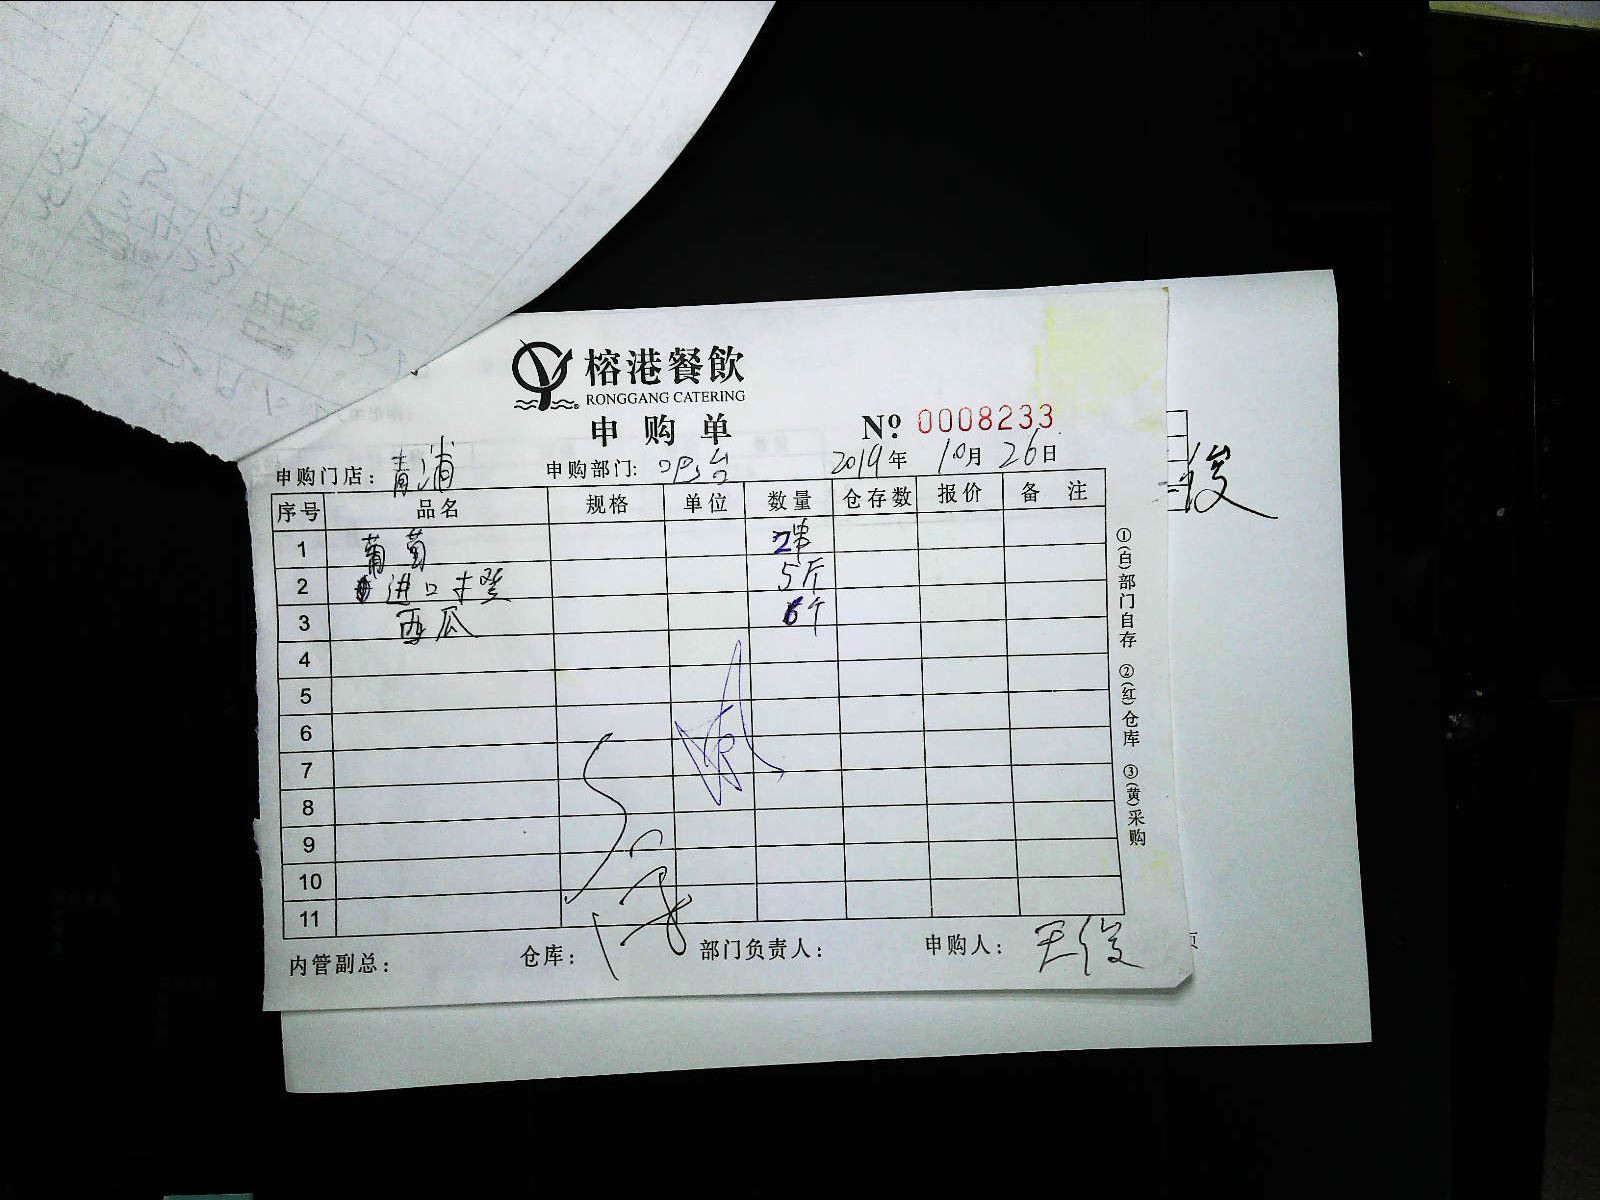 榕港餐飲
RONGGANG CATERING
申购单
№ 0008233
申购门店：青浦 申购部门：吧台 2019年10月26日
序号 品名 规格 单位 数量 仓存数 报价 备注
1 葡萄 2串
2 进口 5斤
3 西瓜 6个
4
5
6
7
8
9
10
11
内管副总： 仓库： 部门负责人： 申购人：王俊
①(白)部门自存 ②(红)仓库 ③(黄)采购
俊